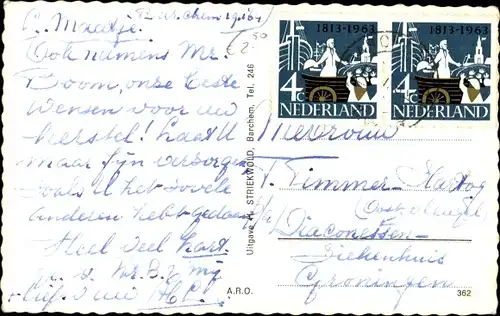 C. Maatje.
Ook namens Mr.
Boom, onze beste
wensen voor uw
herstel! Laat U
maar fijn verzorgen
zoals U het zovele
anderen hebt gedaan.
Heel veel hart.
gr. v. Mr. B. &
lief. v. uw
€ 2,50
1813-1963
4c
NEDERLAND
1813-1963
4c
NEDERLAND
Mevrouw
T. Timmer-Hartog
Oostvleugel,
Diaconessen-
Ziekenhuis
Groningen
Uitgave H. STRIEKWOLD, Barchem, Tel. 246
A.R.O.
362